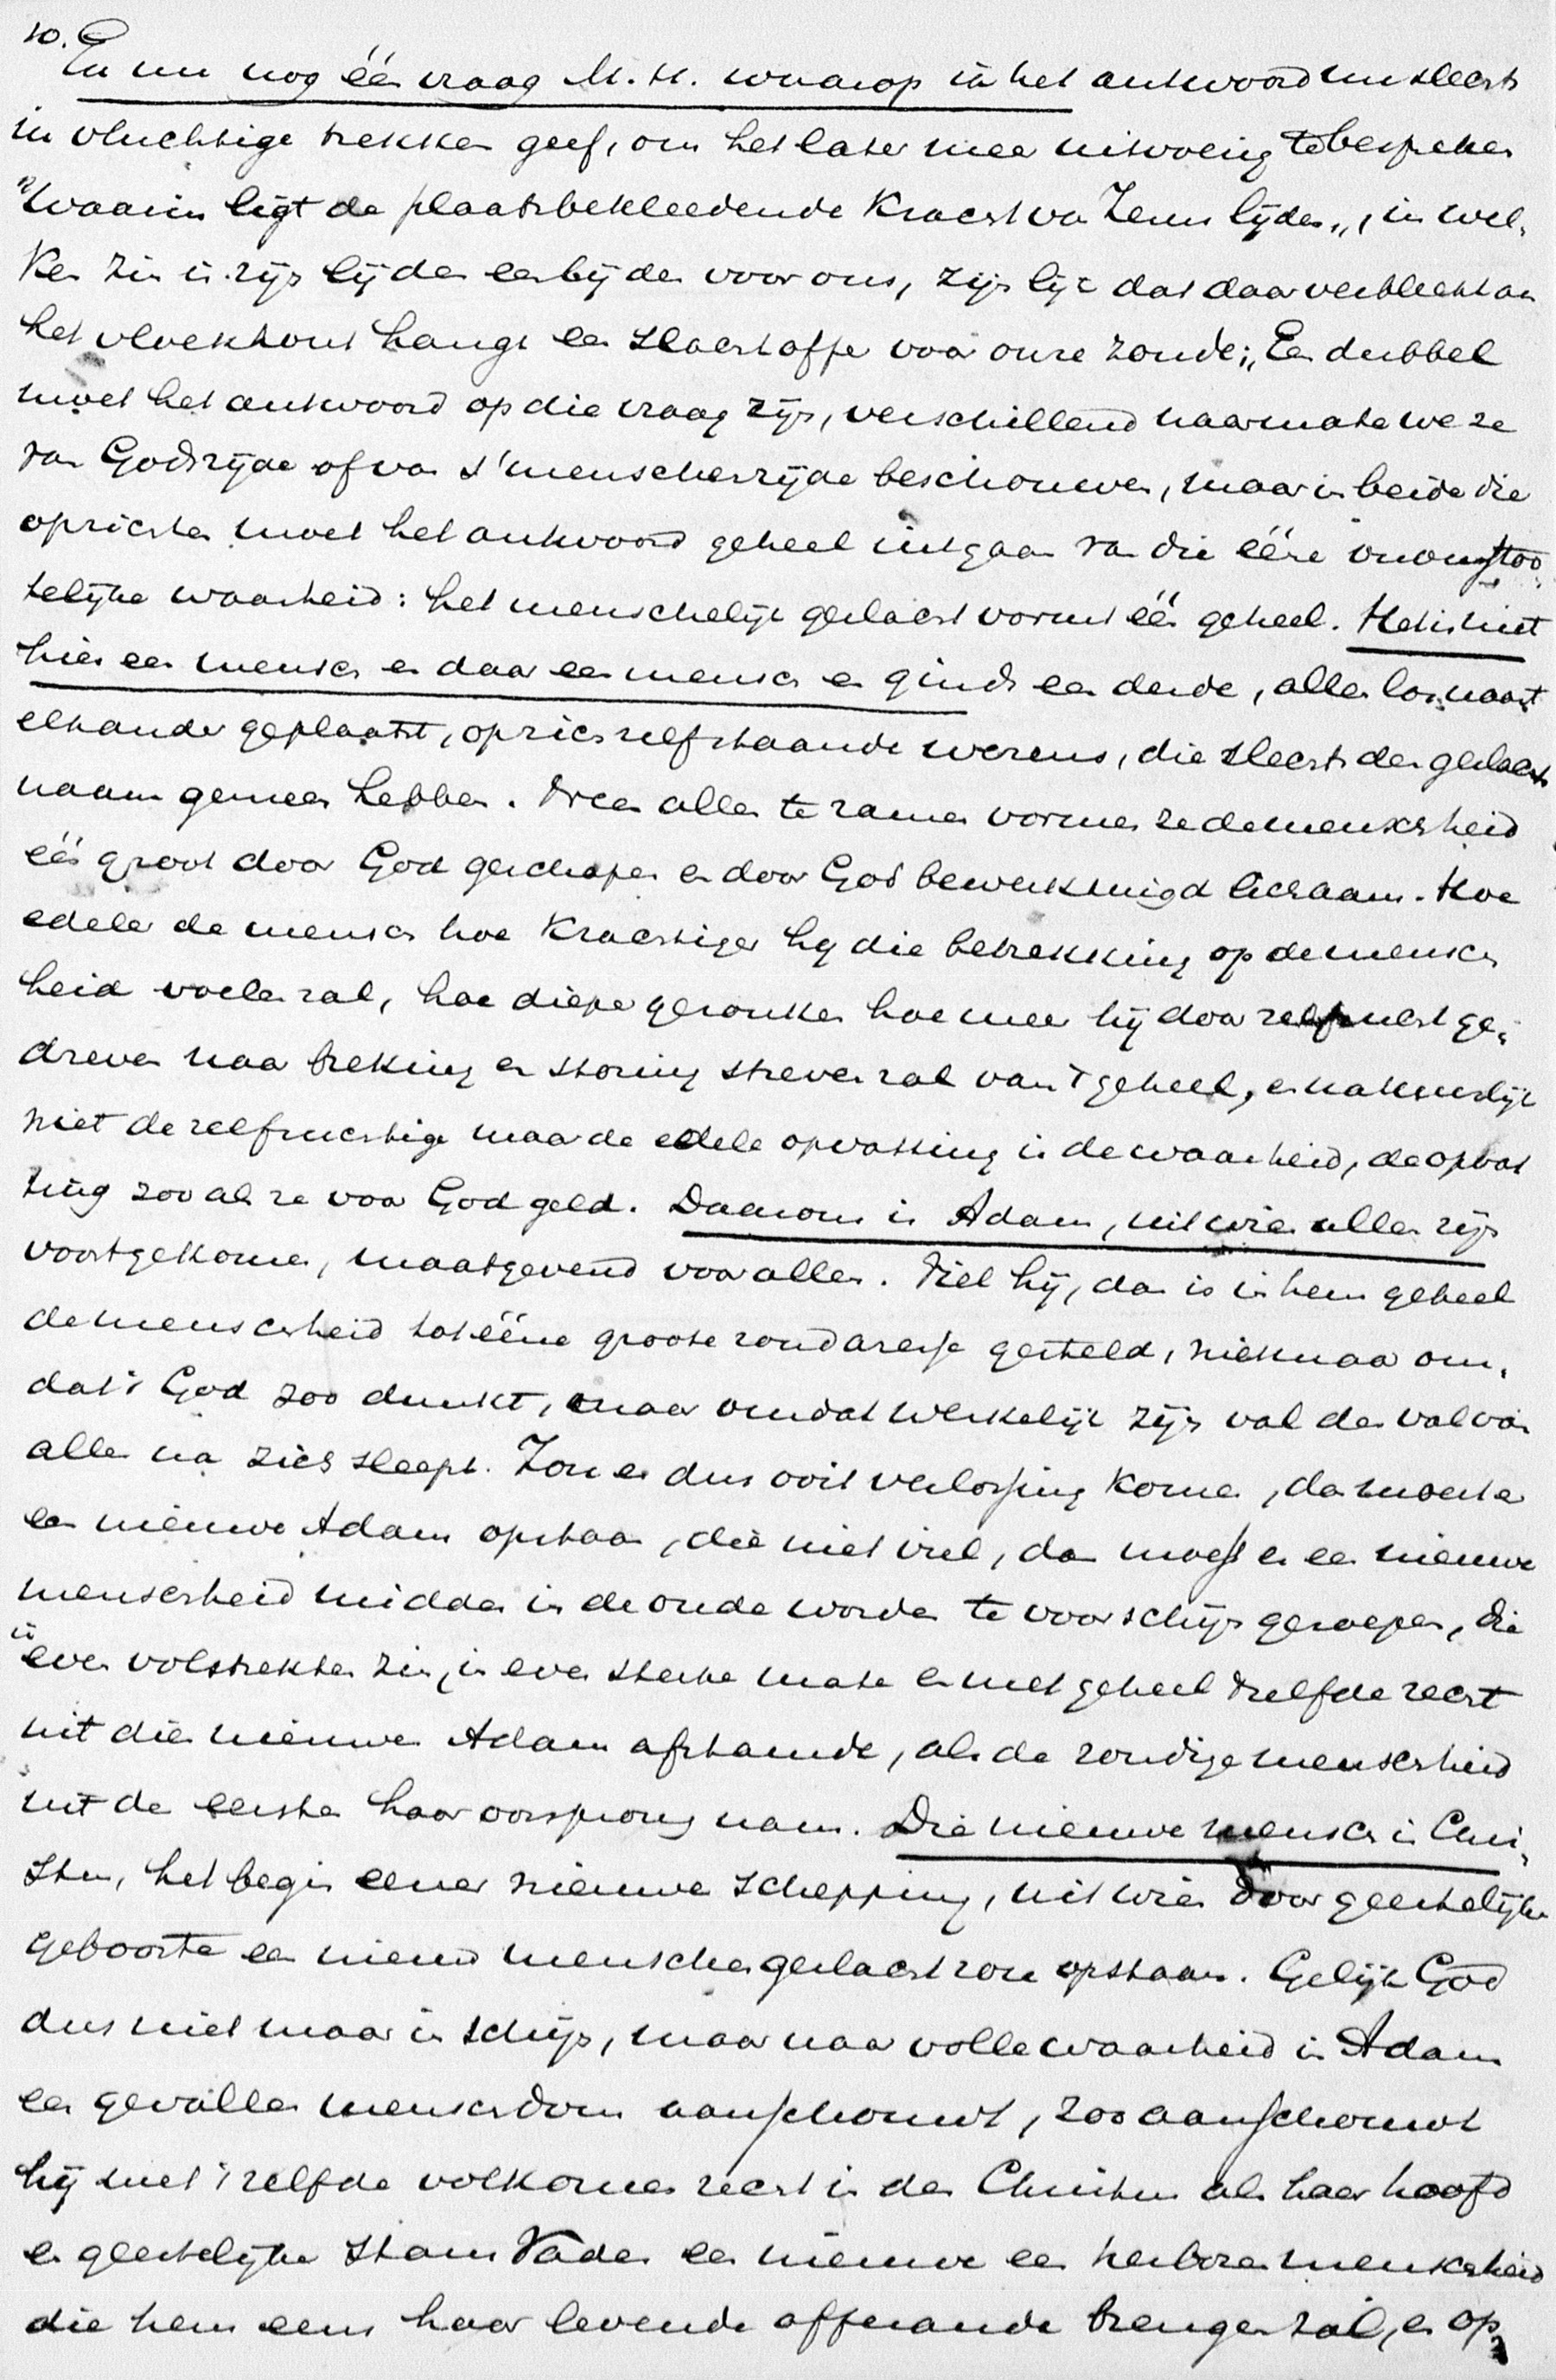 10.
En nu nog één vraag M. H. waarop ik het antwoord nu slechts
in vluchtige trekken geef, om het later meer uitvoerig te bespreken
"Waarin ligt de plaatsbekleedende kracht van Jezus lijden,, in wel-
ken zin is zijn lijden een lijden voor ons, zijn lijk dat daar verbleekt aan
het vloekhout hangt een slachtoffer voor onze zonde;,, Een dubbel
moet het antwoord op die vraag zijn, verschillend naarmate we ze
van Godszijde of van s'menschenzijde beschouwen, maar in beide die
opzichten moet het antwoord geheel uitgaan van die ééne onomstoo-
telijke waarheid: het menschelijk geslacht vormt één geheel. Het is niet
hier een mensch en daar een mensch en ginds een derde, allen los naast
elkander geplaatst, op zich zelfstaande wezens, die slechts den geslachts
naam gemeen hebben. Neen allen te zamen vormen ze de menschheid
één groot door God geschapen en door God bewerktuigd lichaam. Hoe
edeler de mensch hoe krachtiger hij die betrekking op de mensch
heid voelen zal, hoe dieper gezonken hoe meer hij door zelfzucht ge-
dreven naar breking en storing streven zal van 't geheel, en natuurlijk
niet de zelfzuchtige maar de edele opvatting is de waarheid, de opvat
ting zooals ze voor God geld. Daarom is Adam, uit wien allen zijn
voortgekomen, maatgevend voor allen. Viel hij, dan is in hem geheel
de menschheid tot ééne groote zondaresse gesteld, niet maar om-
dat 't God zoo dunkt, maar omdat werkelijk zijn val den val van
allen na zich sleept. Zou er dus ooit verlossing komen, dan moest er
een nieuwe Adam opstaan, die niet viel, dan moest er een nieuwe
menschheid midden in de oude worden te voorschijn geroepen, die
in even volstrekten zin, in even sterke mate en met geheel 'tzelfde recht
uit dien nieuwen Adam afstamde, als de zondige menschheid
uit de eerste haar oorsprong nam. Die nieuwe mensch is Chri-
stus, het begin eener nieuwe schepping, uit wien door geestelijke
geboorte een nieuw menschengeslacht zou opstaan. Gelijk God
dus niet maar in schijn, maar naar volle waarheid in Adam
een gevallen menschdom aanschouwt, zoo aanschouwt
hij met 't zelfde volkomen recht in den Christus als haar hoofd
en geestelijke Stam Vader een nieuwe een herboren menschheid
die hem eens haar levende offerande brengen zal, en op